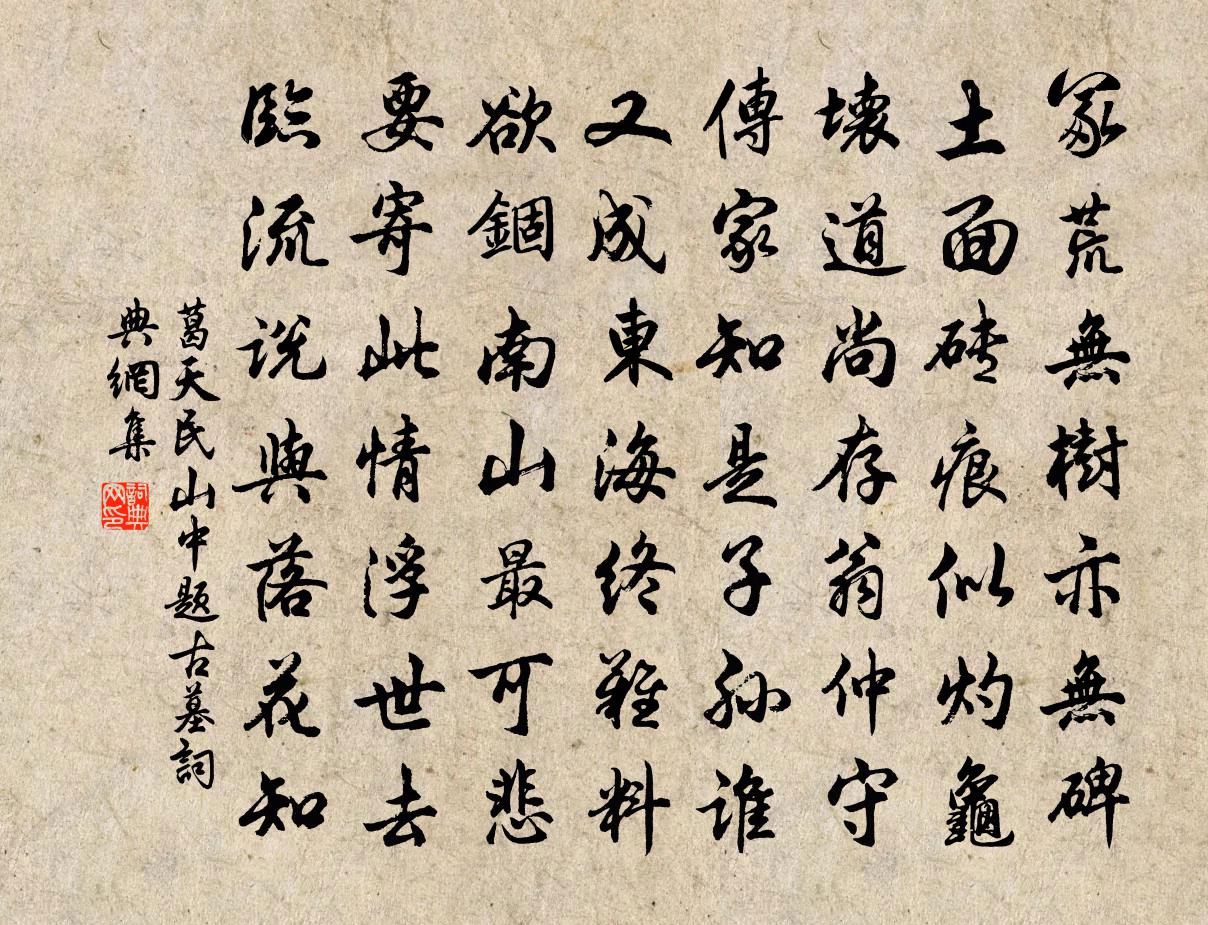 冢荒無樹亦無碑
土面磚痕似灼龜
壞道尚存翁仲守
傳家知是子孫誰
又成東海終難料
欲錮南山最可悲
要寄此情浮世去
臨流説與落花知
葛天民山中題古墓詞
典網集
詞典網印